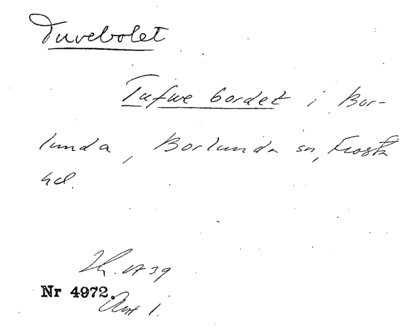 Duvebolet
Tufwe bordet i Bor-
lunda, Borlunda sn, Frosta
hd.
Nr 4972.